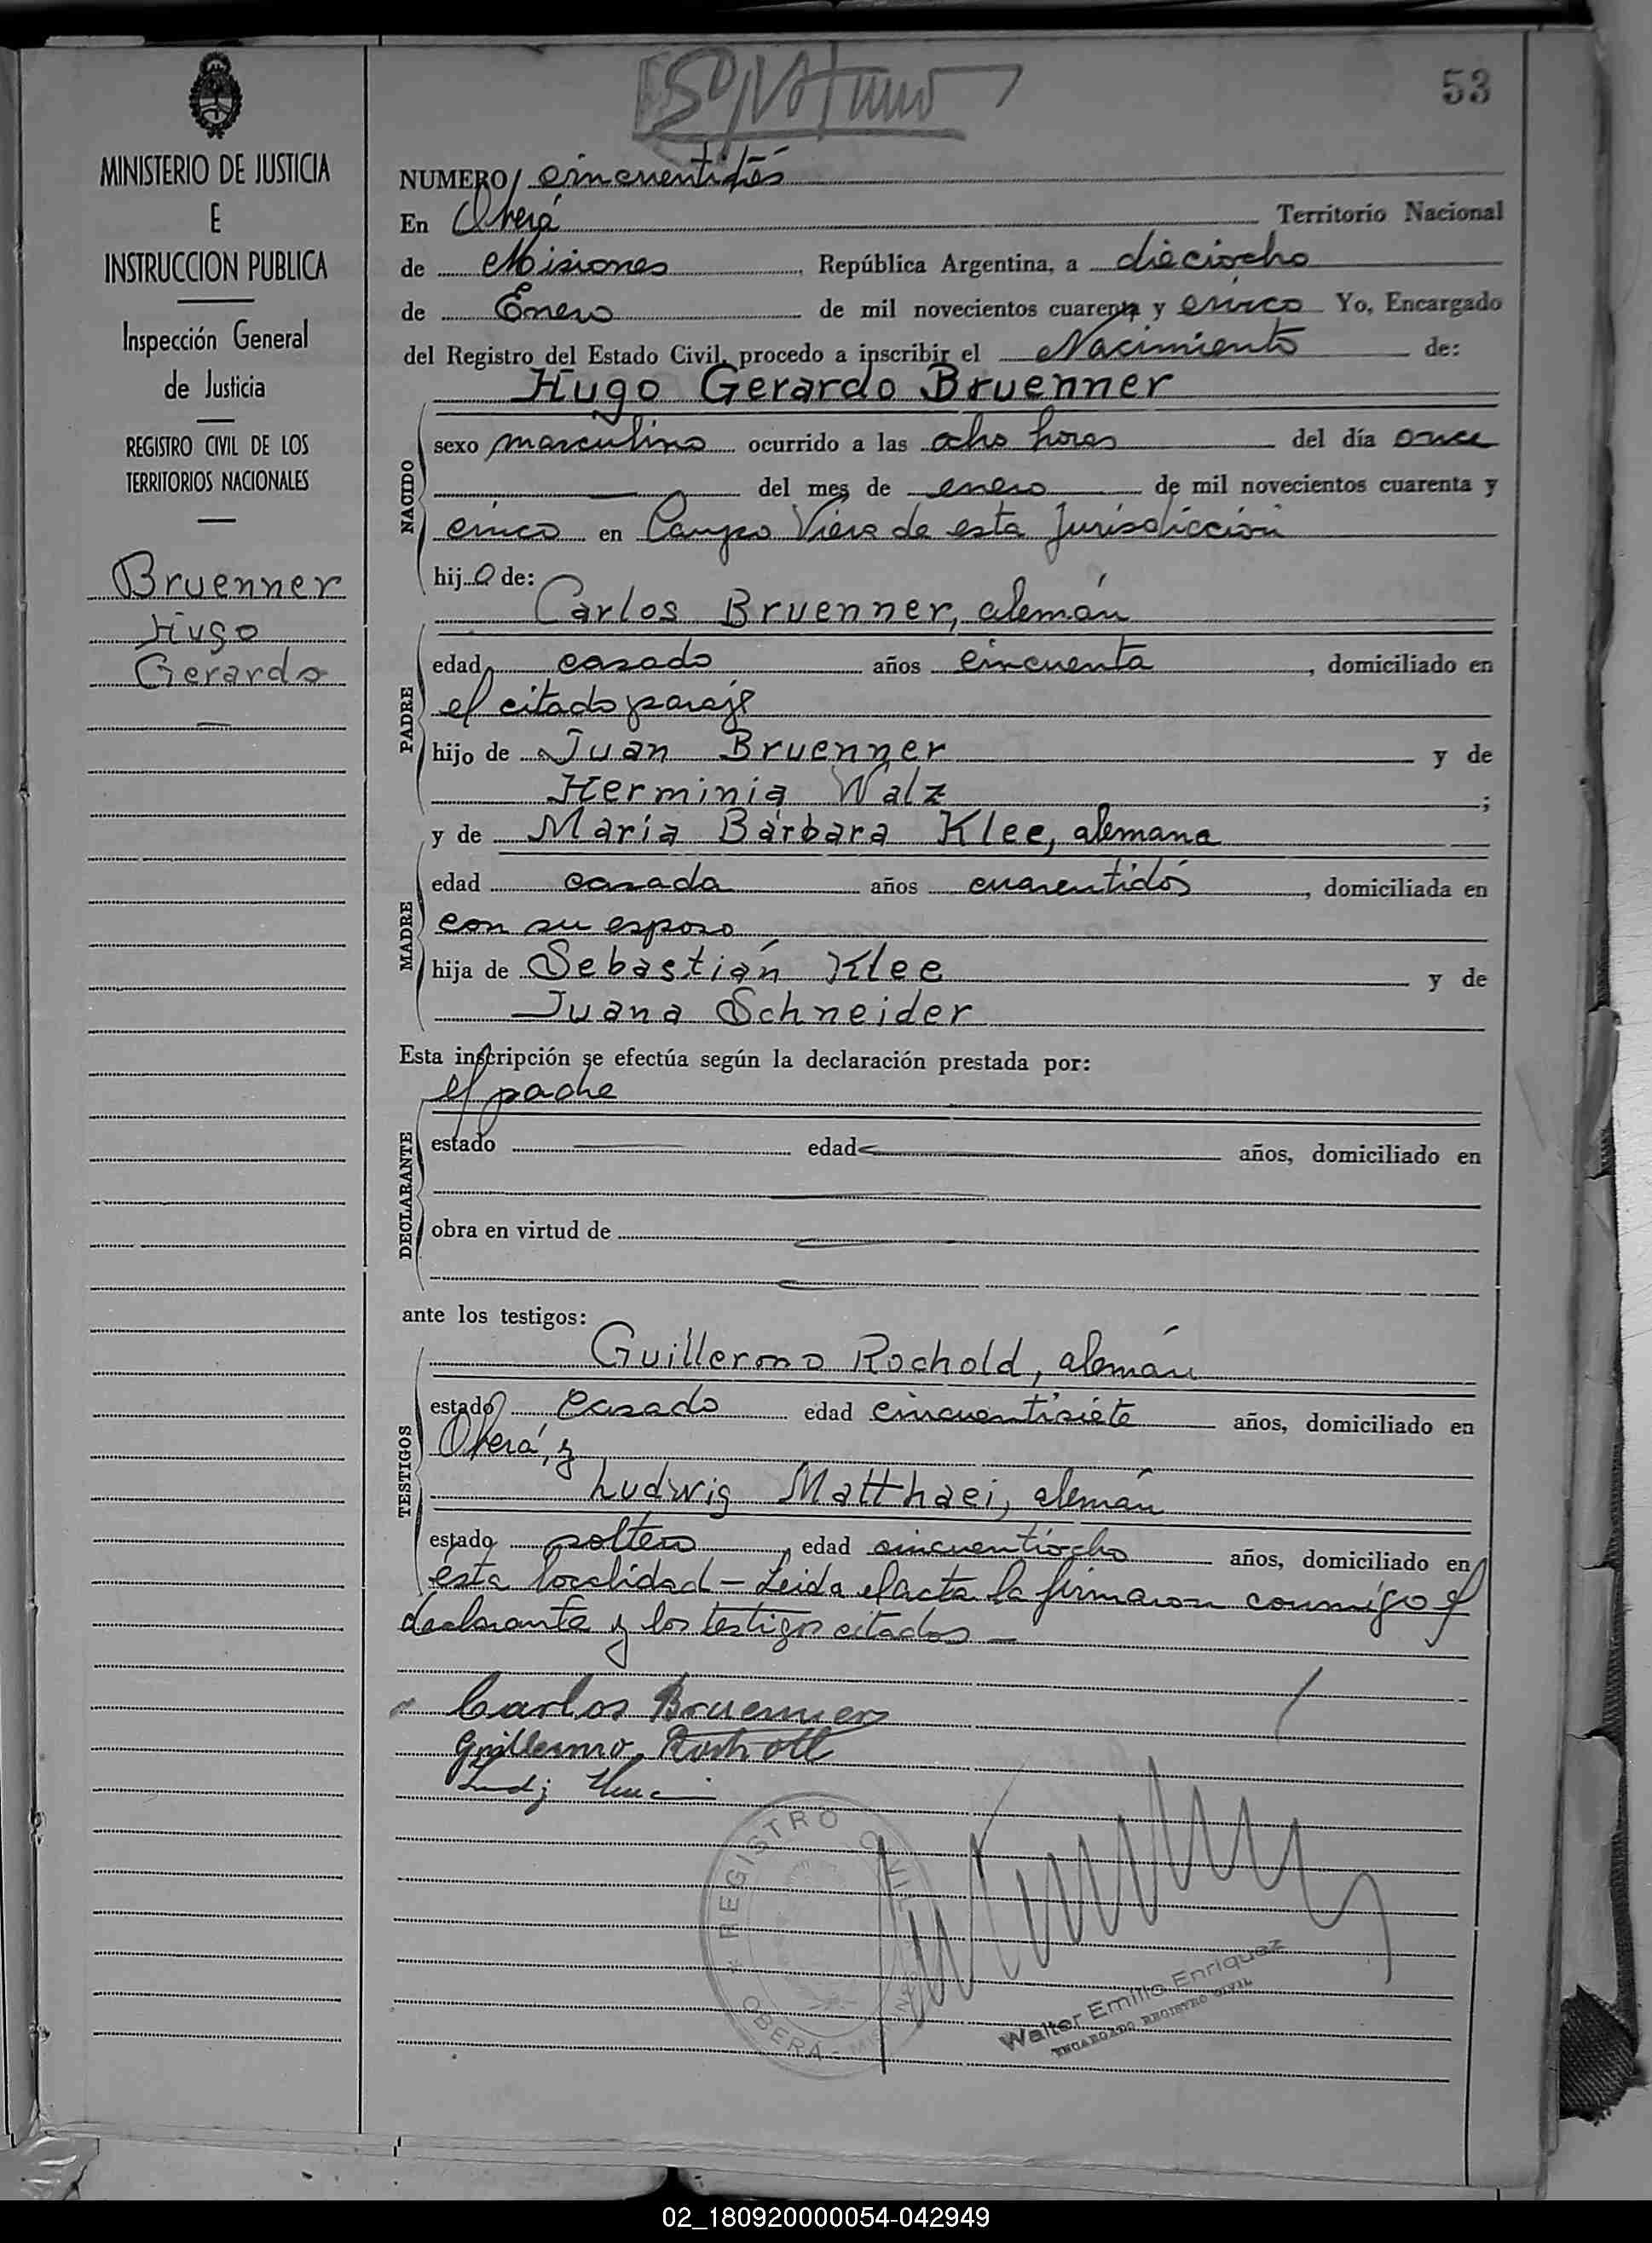 53
MINISTERIO DE JUSTICIA
E
INSTRUCCION PUBLICA
Inspección General
de Justicia
REGISTRO CIVIL DE LOS
TERRITORIOS NACIONALES
Bruenner
Hugo
Gerardo
NUMERO cincuentitrés
En Oberá Territorio Nacional
de Misiones, República Argentina, a dieciocho
de Enero de mil novecientos cuarenta y cinco Yo, Encargado
del Registro del Estado Civil, procedo a inscribir el Nacimiento de:
Hugo Gerardo Bruenner
NACIDO
sexo masculino ocurrido a las ocho horas del día once
— del mes de enero de mil novecientos cuarenta y
cinco en Campo Viera de esta Jurisdicción
hijo de:
Carlos Bruenner, alemán
PADRE
edad casado años cincuenta, domiciliado en
el citado paraje
hijo de Juan Bruenner y de
Herminia Walz ;
y de María Bárbara Klee, alemana
MADRE
edad casada años cuarentidós, domiciliada en
con su esposo
hija de Sebastián Klee y de
Juana Schneider
Esta inscripción se efectúa según la declaración prestada por:
el padre
DECLARANTE
estado — edad — años, domiciliado en
obra en virtud de
ante los testigos:
Guillermo Rochold, alemán
TESTIGOS
estado casado edad cincuentisiete años, domiciliado en
Oberá, y
Ludwig Matthaei, alemán
estado soltero, edad cincuentiocho años, domiciliado en
esta localidad - Leida el acta la firmaron conmigo el
declarante y los testigos citados -
Carlos Bruenner
Guillermo
REGISTRO CIVIL
OBERA - MISIONES
Walter Emilio Enriquez
ENCARGADO REGISTRO CIVIL
02_180920000054-042949